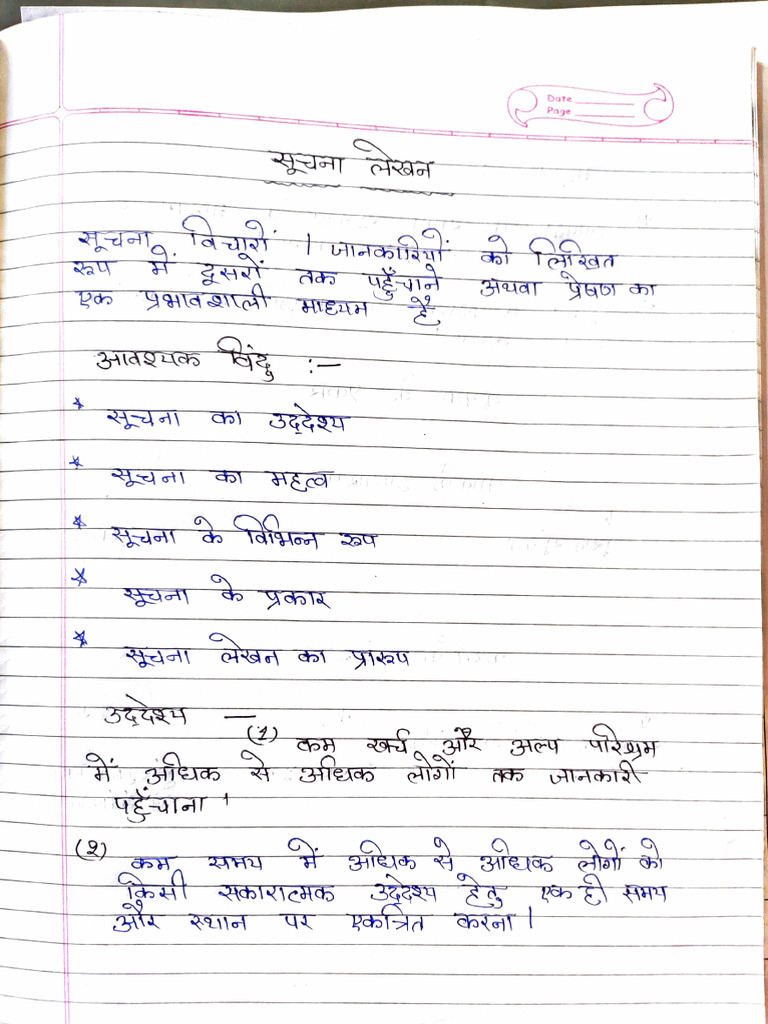 Date
Page
सूचना लेखन
सूचना विचारों / जानकारियों को लिखित
रूप में दूसरों तक पहुँचाने अथवा प्रेषण का
एक प्रभावशाली माध्यम है
आवश्यक बिंदु :-
* सूचना का उद्देश्य
* सूचना का महत्व
* सूचना के विभिन्न रूप
* सूचना के प्रकार
* सूचना लेखन का प्रारूप
उद्देश्य —
(1) कम खर्च और अल्प परिश्रम
में अधिक से अधिक लोगों तक जानकारी
पहुँचाना ।
(2) कम समय में अधिक से अधिक लोगों को
किसी सकारात्मक उद्देश्य हेतु एक ही समय
और स्थान पर एकत्रित करना ।